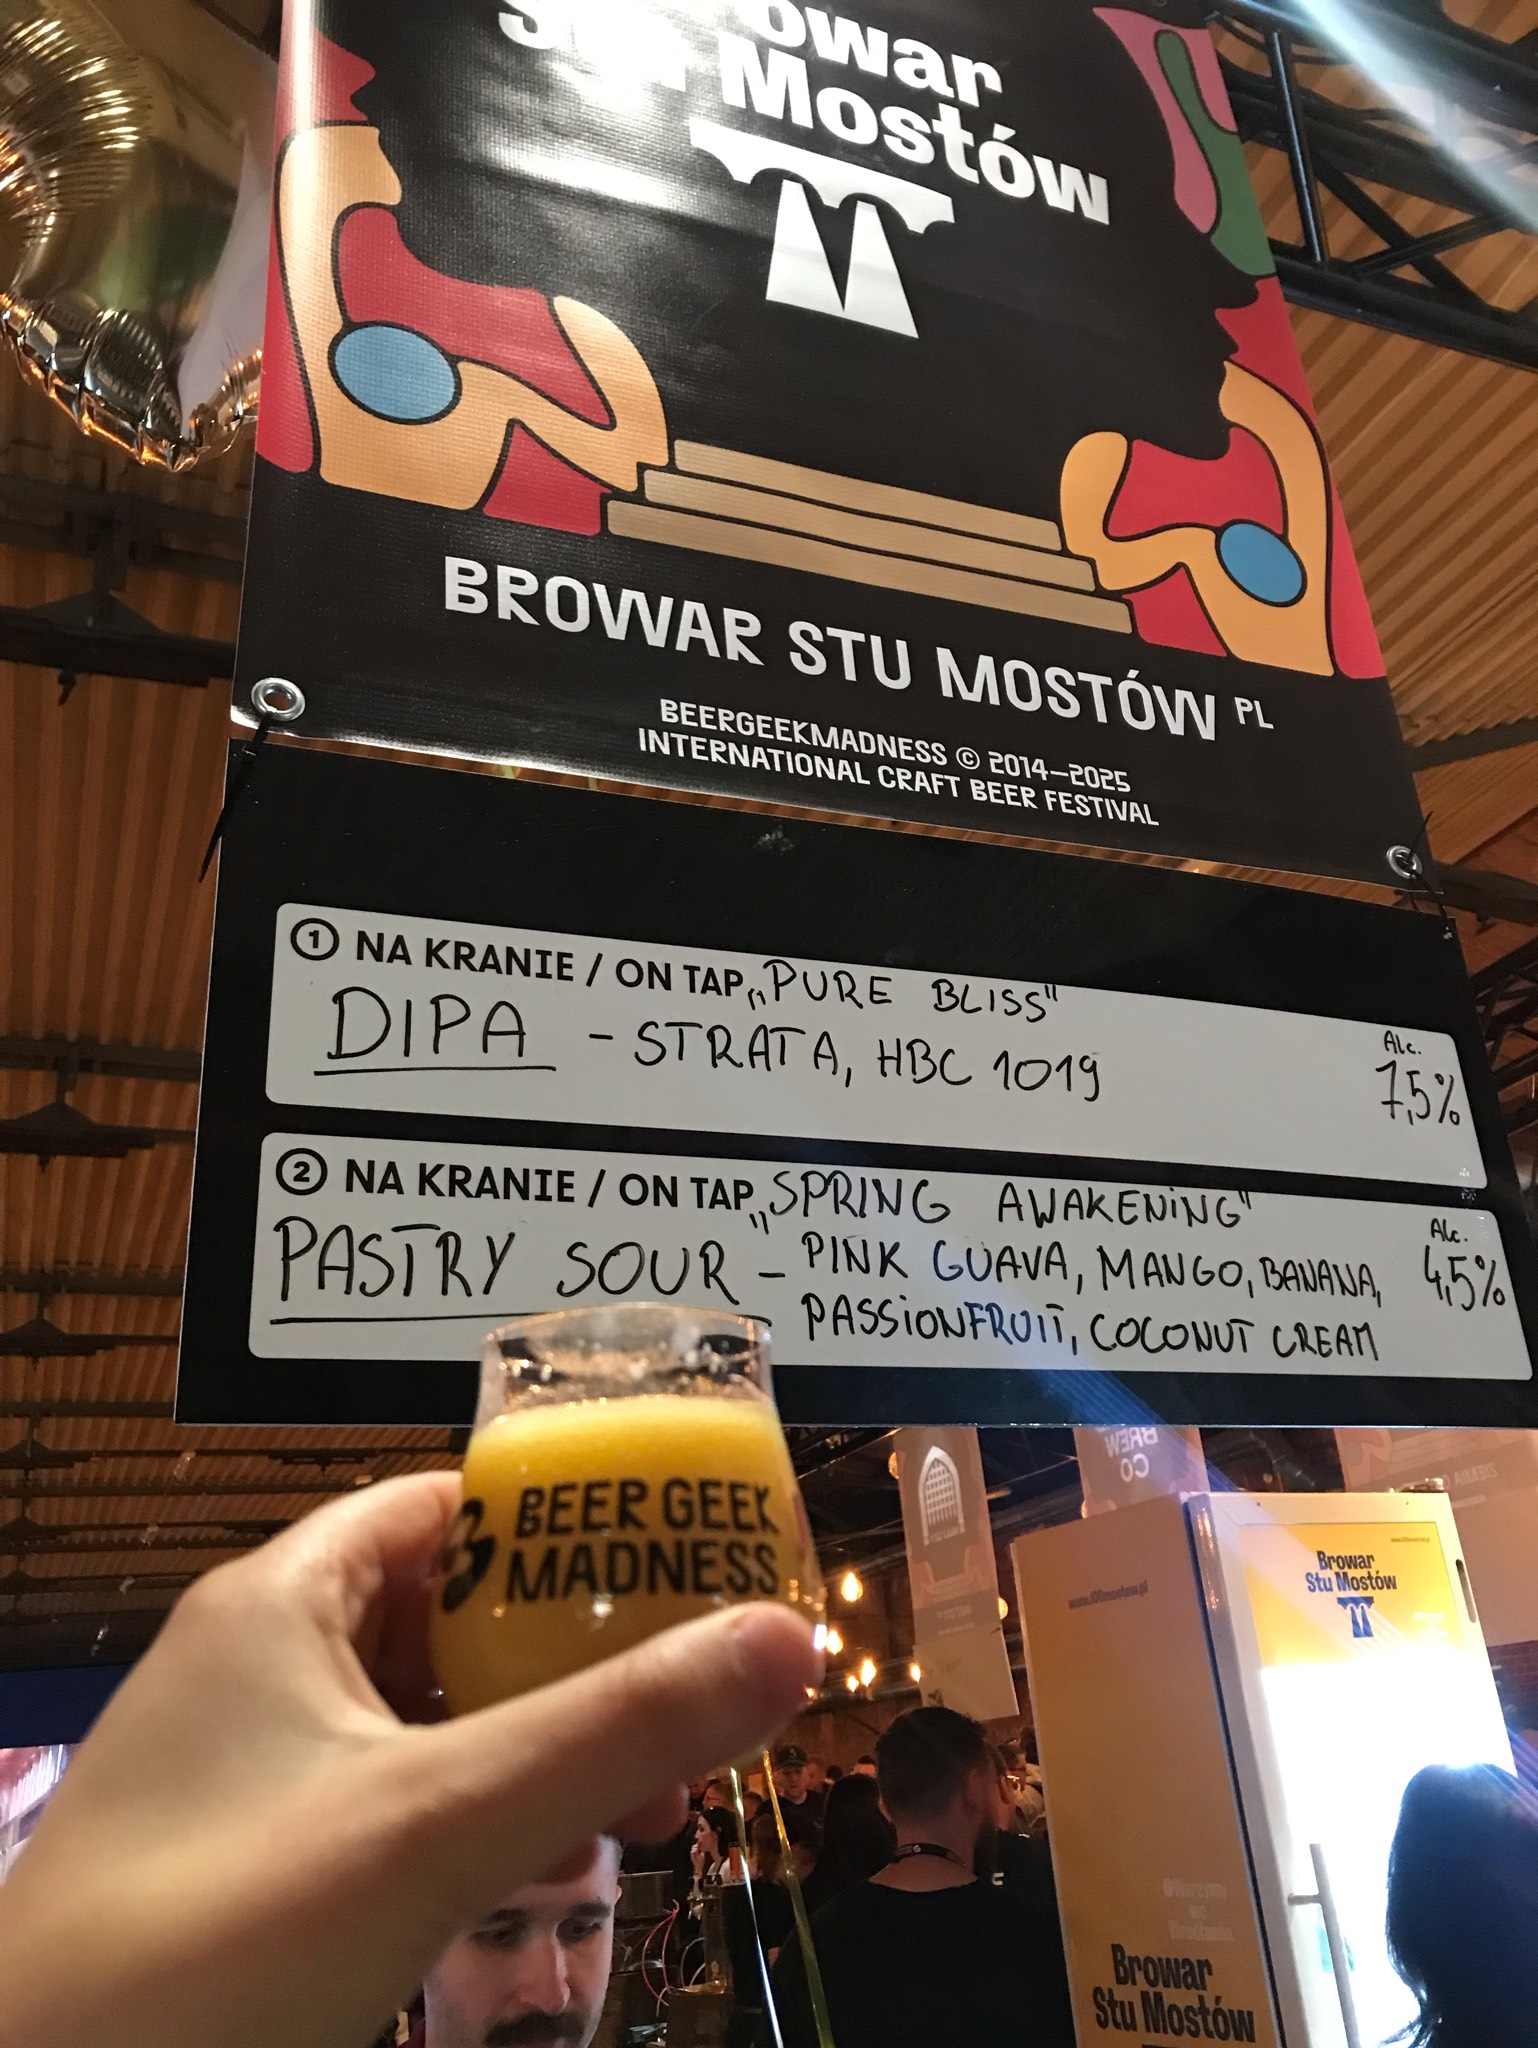 Mostów
BROWAR STU MOSTÓW PL
BEERGEEKMADNESS © 2014–2025
INTERNATIONAL CRAFT BEER FESTIVAL
1 NA KRANIE / ON TAP „PURE BLISS"
DIPA - STRATA, HBC 1019
Alc.
7,5%
2 NA KRANIE / ON TAP „SPRING AWAKENING"
PASTRY SOUR - PINK GUAVA, MANGO, BANANA,
PASSIONFRUIT, COCONUT CREAM
Alc.
4,5%
BEER GEEK
MADNESS
BREW
CO
www.100mostow.pl
Browar
Stu Mostów
Browar
Stu Mostów